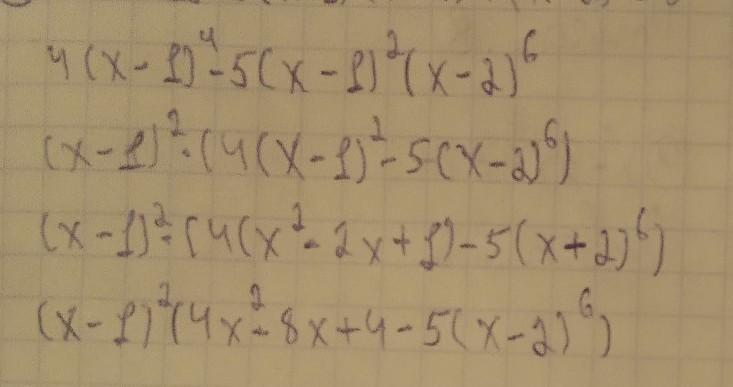 4(x-1)⁴-5(x-1)²(x-2)⁶
(x-1)²·(4(x-1)²-5(x-2)⁶)
(x-1)²·(4(x²-2x+1)-5(x+2)⁶)
(x-1)²(4x²-8x+4-5(x-2)⁶)